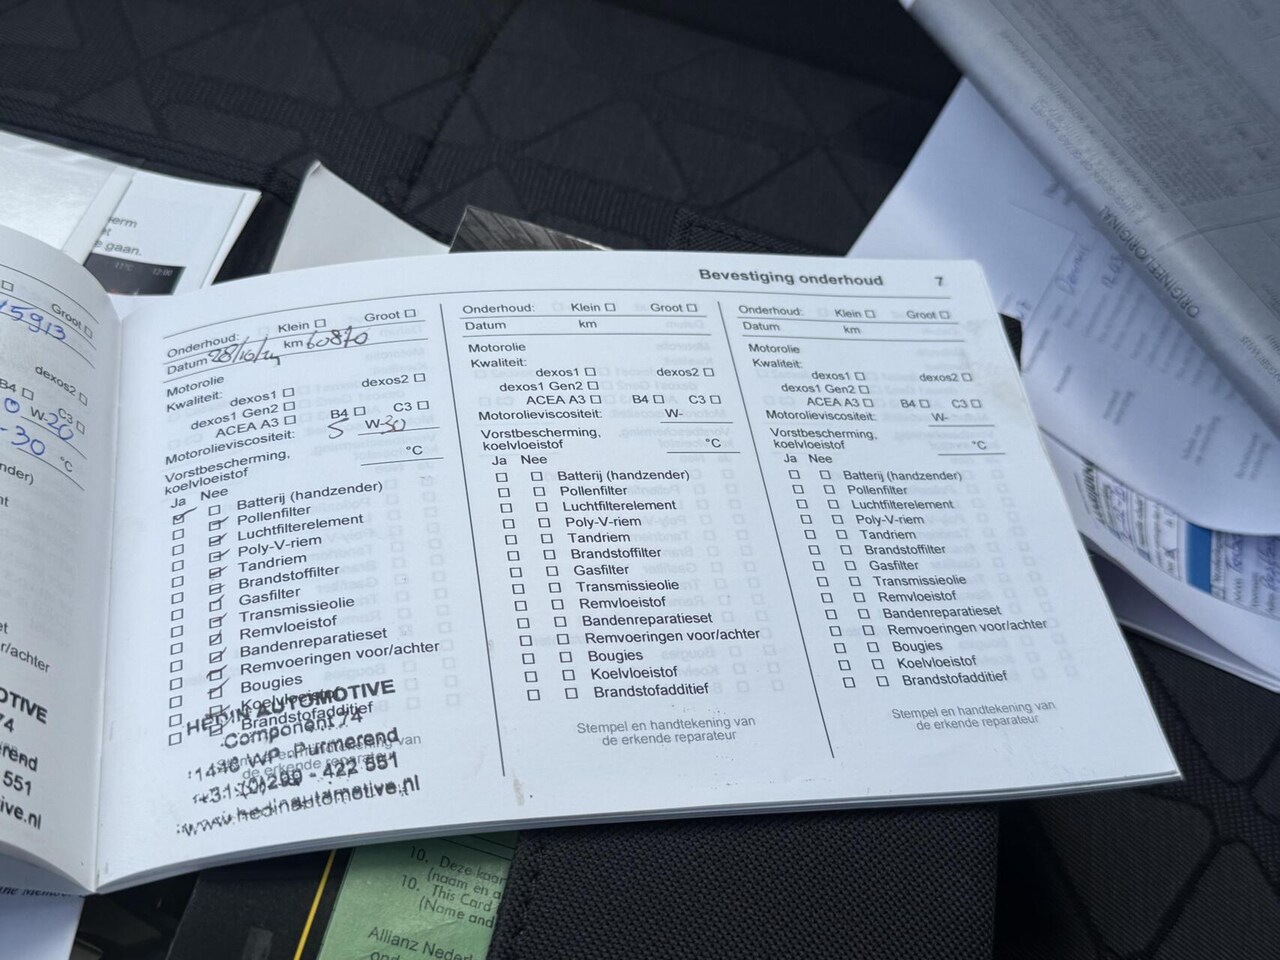 erm
e gaan.
17°C 12:00
Groot ☐
15913
dexos2 ☐
B4 ☐ C3 ☐
0 W-20
-30 °C
nder)
r/achter
OTIVE
74
rend
551
ive.nl
Bevestiging onderhoud 7
Onderhoud: Klein ☐ Groot ☐
Datum 28/10/24 km 60870
Motorolie
Kwaliteit: dexos1 ☐ dexos2 ☐
dexos1 Gen2 ☐
ACEA A3 ☐ B4 ☐ C3 ☐
Motorolieviscositeit: 5 W-30
Vorstbescherming,
koelvloeistof °C
Ja Nee
Batterij (handzender)
Pollenfilter
Luchtfilterelement
Poly-V-riem
Tandriem
Brandstoffilter
Gasfilter
Transmissieolie
Remvloeistof
Bandenreparatieset
Remvoeringen voor/achter
Bougies
Koelvloeistof
Brandstofadditief
Stempel en handtekening van
de erkende reparateur
HEDIN AUTOMOTIVE
Component 74
1446 WP Purmerend
+31(0)299 - 422 551
www.hedinautomotive.nl
Onderhoud: Klein ☐ Groot ☐
Datum km
Motorolie
Kwaliteit:
dexos1 ☐ dexos2 ☐
dexos1 Gen2 ☐
ACEA A3 ☐ B4 ☐ C3 ☐
Motorolieviscositeit: W-
Vorstbescherming,
koelvloeistof °C
Ja Nee
☐ ☐ Batterij (handzender)
☐ ☐ Pollenfilter
☐ ☐ Luchtfilterelement
☐ ☐ Poly-V-riem
☐ ☐ Tandriem
☐ ☐ Brandstoffilter
☐ ☐ Gasfilter
☐ ☐ Transmissieolie
☐ ☐ Remvloeistof
☐ ☐ Bandenreparatieset
☐ ☐ Remvoeringen voor/achter
☐ ☐ Bougies
☐ ☐ Koelvloeistof
☐ ☐ Brandstofadditief
Stempel en handtekening van
de erkende reparateur
Onderhoud: Klein ☐ Groot ☐
Datum km
Motorolie
Kwaliteit:
dexos1 ☐ dexos2 ☐
dexos1 Gen2 ☐
ACEA A3 ☐ B4 ☐ C3 ☐
Motorolieviscositeit: W-
Vorstbescherming,
koelvloeistof °C
Ja Nee
☐ ☐ Batterij (handzender)
☐ ☐ Pollenfilter
☐ ☐ Luchtfilterelement
☐ ☐ Poly-V-riem
☐ ☐ Tandriem
☐ ☐ Brandstoffilter
☐ ☐ Gasfilter
☐ ☐ Transmissieolie
☐ ☐ Remvloeistof
☐ ☐ Bandenreparatieset
☐ ☐ Remvoeringen voor/achter
☐ ☐ Bougies
☐ ☐ Koelvloeistof
☐ ☐ Brandstofadditief
Stempel en handtekening van
de erkende reparateur
10. Deze kaar
(naam en a
10. This Card
(Name and
Allianz Neder
ORIGINEEL/ORIGINAL